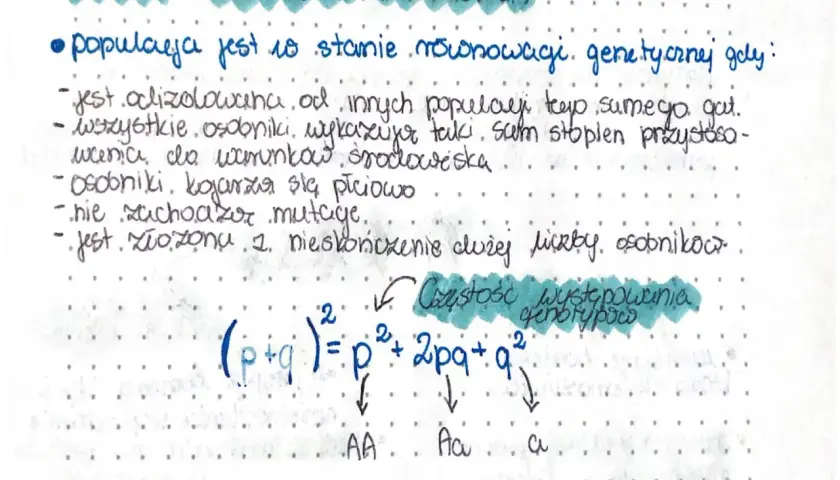 • populacja jest w stanie równowagi genetycznej gdy:
- jest odizolowana od innych populacji tego samego gat.
- wszystkie osobniki wykazują taki sam stopien przystoso-
wania do warunków środowiska
- osobniki kojarzą się płciowo
- nie zachodzą mutacje
- jest złożona z nieskończenie dużej liczby osobników
Częstość występowania
genotypów
(p+q)² = p² + 2pq + q²
AA Aa a